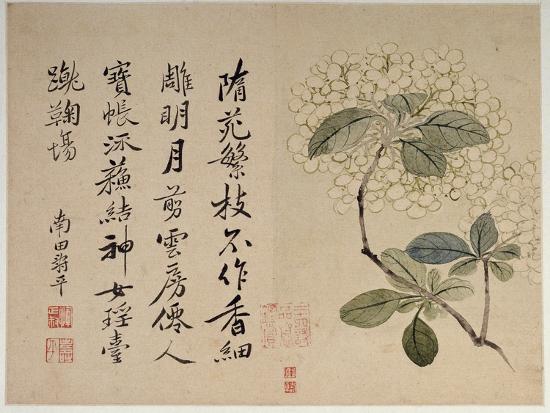 隋苑繁枝不作香細
雕明月剪雲房僊人
寶帳流蘇結神女瑶臺
蹴鞠場
南田壽平